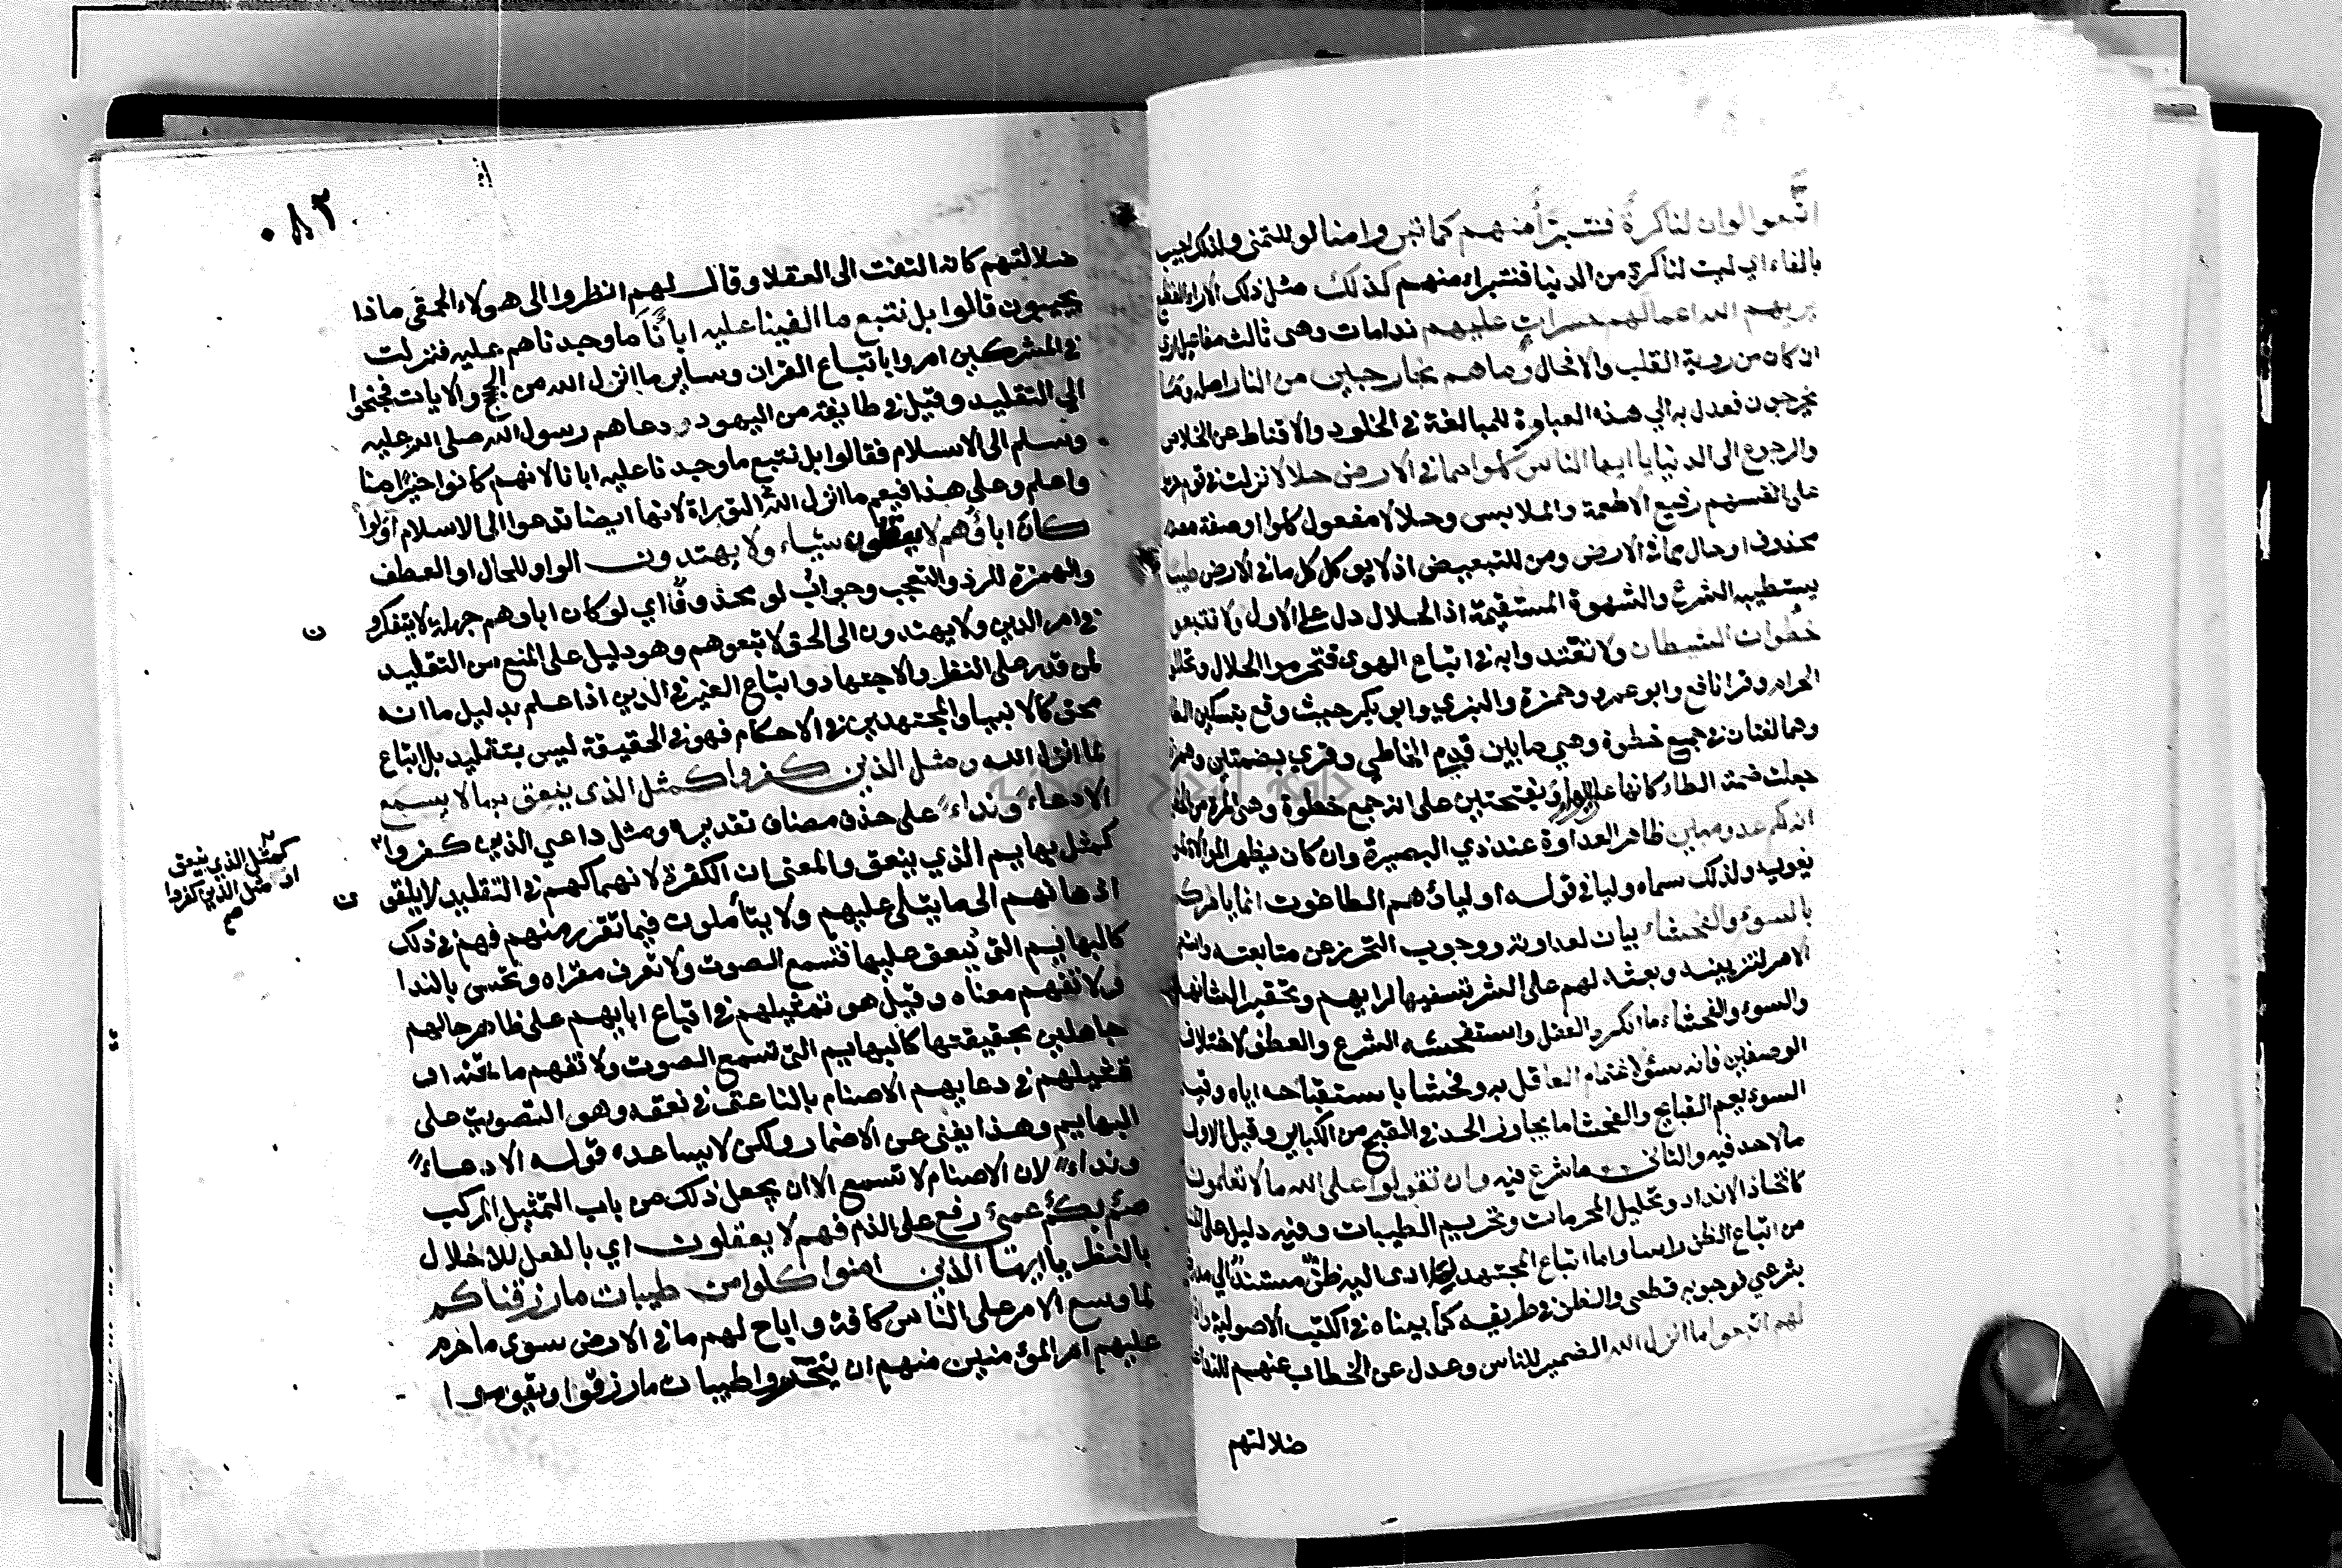 اتبعوا لوان لنا كرة فنتبرأ منهم كما تبرءوا منا لو للتمنى ولذلك اجيب
بالفاء اى ليت لنا كرة من الدنيا فنتبراء منهم كذلك مثل ذلك الاراء الفظيع
يريهم الله اعمالهم حسرات عليهم ندامات وهى ثالث مفاعيل يرى
ان كان من روية القلب والا فحال وما هم بخارجين من النار اصله وما
يخرجون فعدل به الى هذه العبارة للمبالغة فى الخلود والاقناط عن الخلاص
والرجوع الى الدنيا يا ايها الناس كلوا مما فى الارض حلالا نزلت فى قوم حرموا
على انفسهم رفيع الاطعمة والملابس وحلالا مفعول كلوا او صفة مصدر
محذوف او حال مما فى الارض ومن للتبعيض اذ لا يوكل كل ما فى الارض طيبا
يستطيبه الشرع والشهوة المستقيمة اذ الحلال دل على الاول ولا تتبعوا
خطوات الشيطان ولا تقتدوا به فى اتباع الهوى فتحرموا الحلال وتحللوا
الحرام وقرا نافع وابو عمرو وحمزة والبزي وابو بكر حيث وقع بتسكين الطا
وهما لغتان فى جمع خطوة وهى ما بين قدم الخاطي وقري بضمتين وهمزة
جعلت ضمة الطاء كانها عليها وبفتحتين على انه جمع خطوة وهى المرة من الخطو
انه لكم عدو مبين ظاهر العداوة عند ذي البصيرة وان كان يظهر الموالاة لمن
يغويه ولذلك سماه وليا فى قوله اولياؤهم الطاغوت انما يامركم
بالسوء والفحشاء بيان لعداوته ووجوب التحرز عن متابعته واستعير
الامر لتزيينه وبعثه لهم على الشر تسفيها لرايهم وتحقيرا لشانهم
والسوء والفحشاء ما انكره العقل واستقبحشه الشرع والعطف لاختلاف
الوصفين فانه سوء لاغتمام العاقل به وفحشا باستقباحه اياه وقيل
السوء يعم القبايح والفحشا ما يجاوز الحد فى القبح من الكباير وقيل الاول
مالا حد فيه والثانى ما شرع فيه وان تقولوا على الله ما لا تعلمون
كاتخاذ الانداد وتحليل المحرمات وتحريم الطيبات وفيه دليل على المنع
من اتباع الظن راسا واما اتباع المجتهد لما ادى اليه ظن مستند الى مدرك
شرعي فوجوبه قطعى والظن فى طريقه كما بيناه فى الكتب الاصولية واذا قيل
لهم اتبعوا ما انزل الله الضمير للناس وعدل عن الخطاب عنهم للنداء على
ضلالتهم
٠٨٢
ضلالتهم كانه التفت الى العقلا وقال لهم انظروا الى هولاء الحمقى ماذا
يجيبون قالوا بل نتبع ما الفينا عليه اباءنا ما وجدناهم عليه فنزلت
فى المشركين امروا باتباع القران وساير ما انزل الله من الحجج والايات فجنحوا
الى التقليد وقيل فى طايفة من اليهود دعاهم رسول الله صلى الله عليه
وسلم الى الاسلام فقالوا بل نتبع ما وجدنا عليه ابانا لانهم كانوا خيرا منا
واعلم وعلى هذا فيعم ما انزل الله التوراة لانها ايضا تدعوا الى الاسلام اولو
كان اباؤهم لا يعقلون شيئاء ولا يهتدون الواو للحال او العطف
والهمزة للرد والتعجب وجواب لو محذوف اي لو كان اباوهم جهلة لا يتفكرو ن
فى امر الدين ولا يهتدون الى الحق لاتبعوهم وهو دليل على المنع من التقليد
لمن قدر على النظر والاجتهاد واتباع الغير فى الدين اذا علم بدليل ما انه
محق كالانبيا والمجتهدين فى الاحكام فهو فى الحقيقة ليس بتقليد بل اتباع
لما انزل الله ومثل الذين كفروا كمثل الذى ينعق بما لا يسمع
الا دعاء ونداء على حذف مضاف تقديره ومثل داعي الذين كفروا
كمثل الذي ينعق
او مثل الذين كفروا
صح
كمثل بهايم الذي ينعق والمعنى ان الكفرة لانهماكهم فى التقليد لا يلقو ن
اذهانهم الى ما يتلى عليهم ولا يتأملون فيما تقرر منهم فهم فى ذلك
كالبهايم التى ينعق عليها فتسمع الصوت ولا تعرف مغزاه وتحس بالندا
ولا تفهم معناه وقيل هو تمثيلهم فى اتباع ابايهم على ظاهر حالهم
جاهلين بحقيقتها كالبهايم التى تسمع الصوت ولا تفهم ما تحته او
تمثيلهم فى دعايهم الاصنام بالناعق فى نعقه وهو التصويت على
البهايم وهذا يغنى عن الاضمار ولكن لا يساعده قوله الا دعاء
ونداء لان الاصنام لا تسمع الا ان يجعل ذلك من باب التمثيل المركب
صم بكم عمي رفع على الذم فهم لا يعقلون اي بالفعل للاخلال
بالنظر يا ايها الذين امنوا كلوا من طيبات ما رزقناكم
لما وسع الامر على الناس كافة واباح لهم ما فى الارض سوى ما حرم
عليهم امر المؤمنين منهم ان يتحروا طيبات ما رزقوا ويقوموا